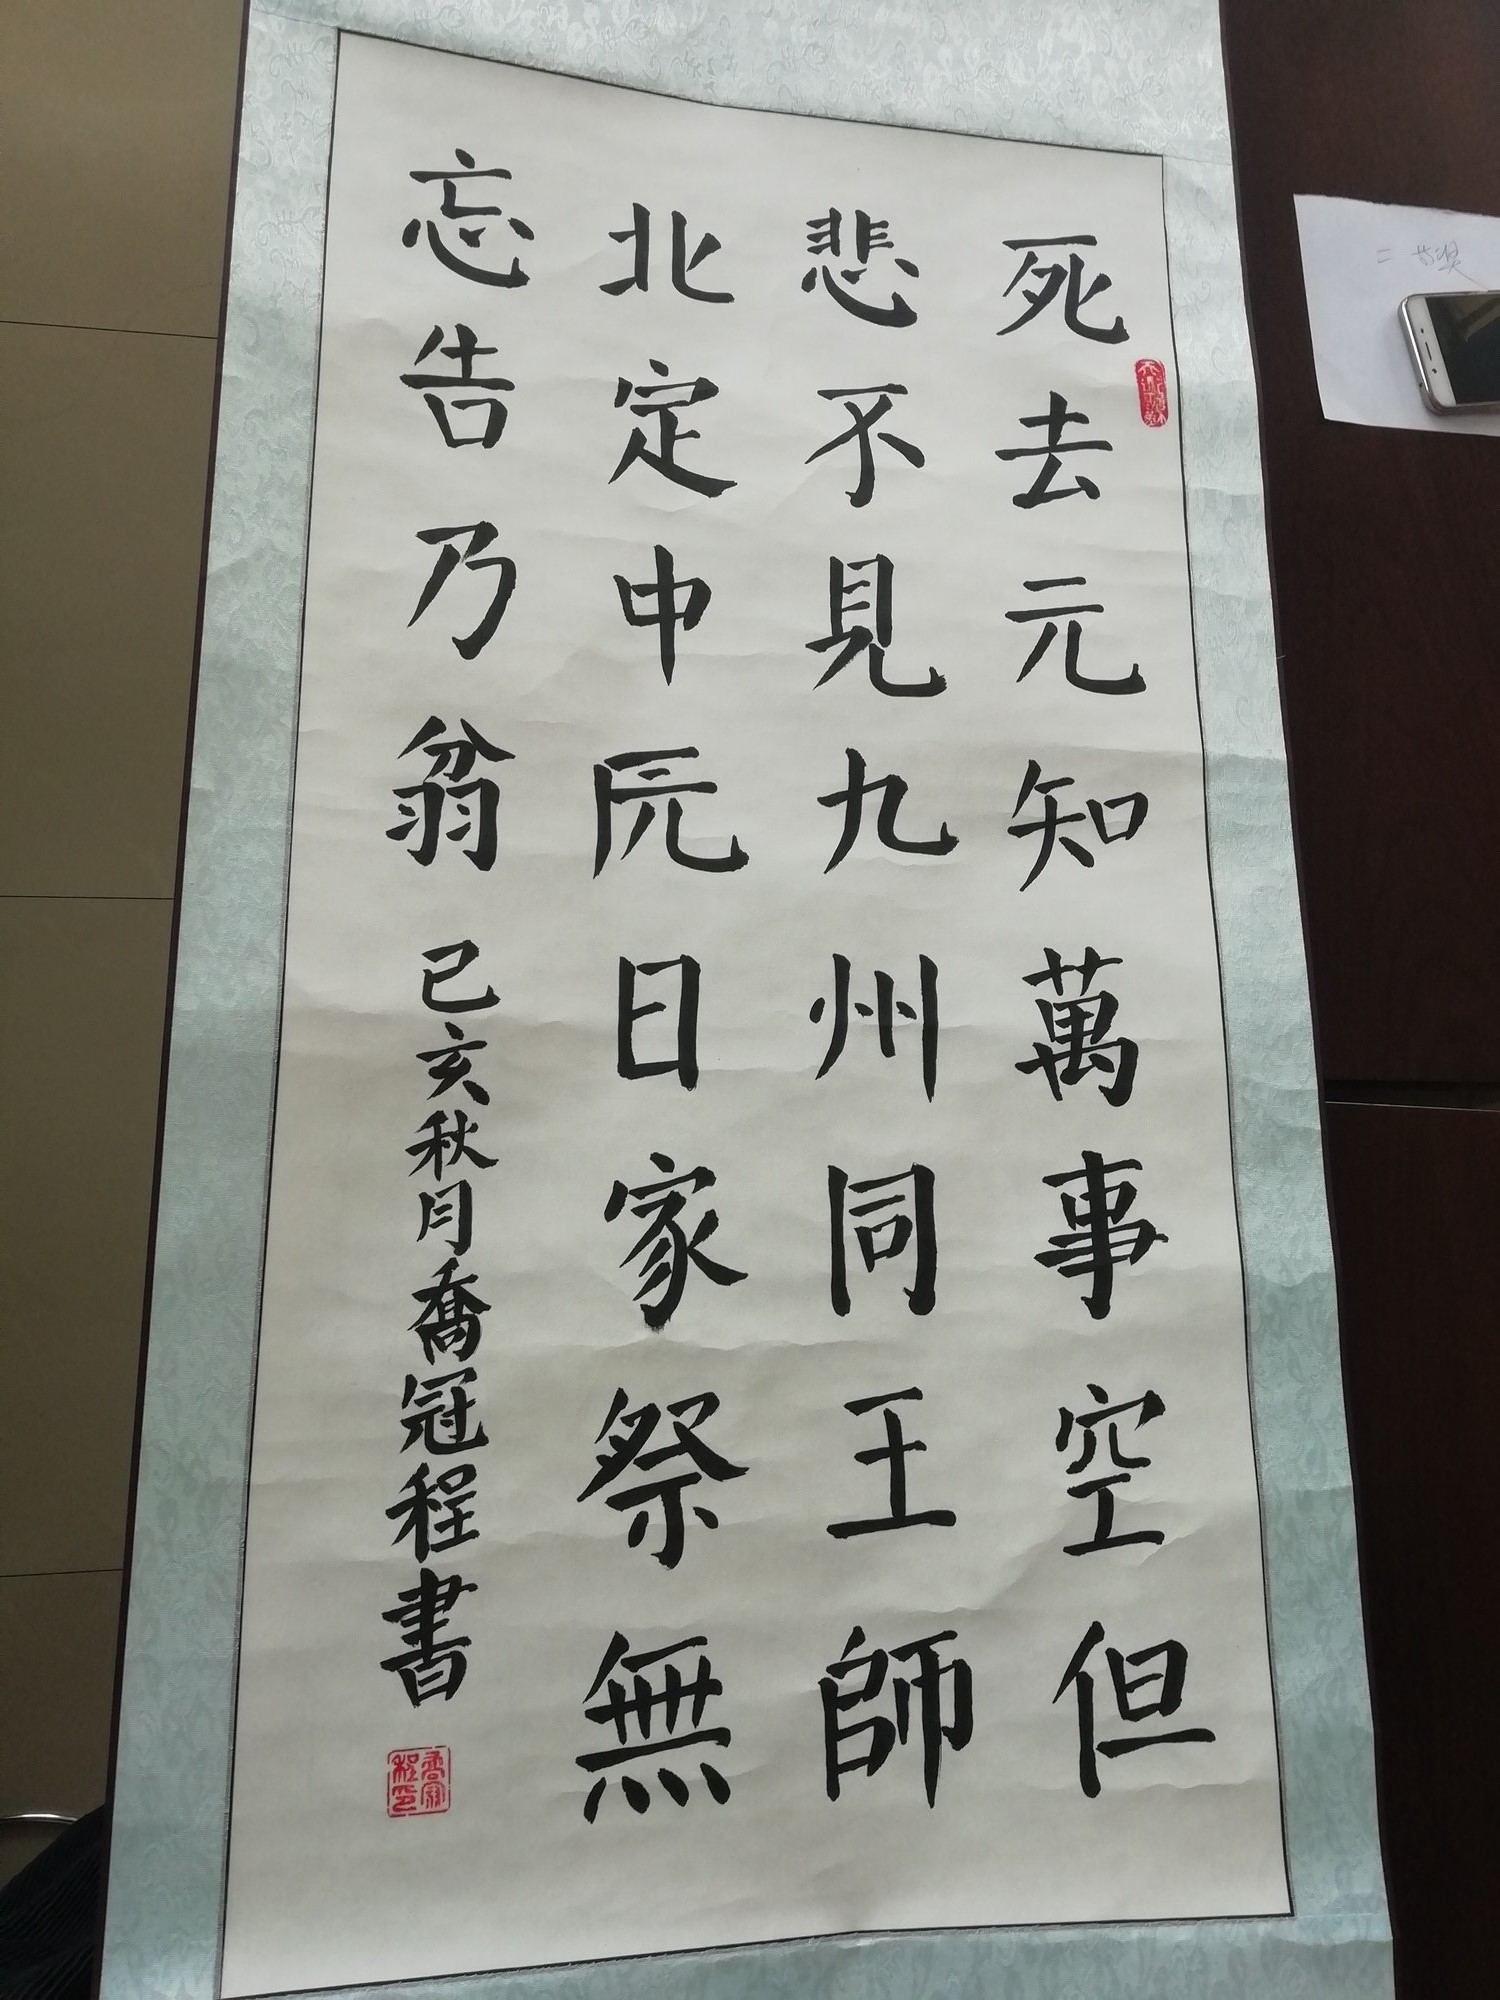 死去元知萬事空但
悲不見九州同王師
北定中原日家祭無
忘告乃翁 己亥秋月喬冠程書
喬冠程印
二等奖